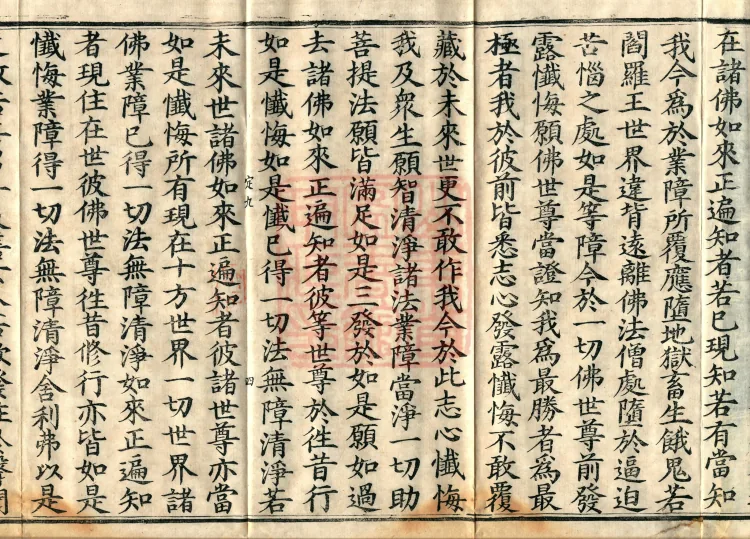 在諸佛如來正遍知者若已現知若有當知
我今為於業障所覆應墮地獄畜生餓鬼若
閻羅王世界違背遠離佛法僧處墮於逼迫
苦惱之處如是等障今於一切佛世尊前發
露懺悔願佛世尊當證知我為最勝者為最
極者我於彼前皆悉志心發露懺悔不敢覆
藏於未來世更不敢作我今於此志心懺悔
我及衆生願智清淨諸法業障當淨一切助
菩提法願皆滿足如是三發於如是願如過
去諸佛如來正遍知者彼等世尊於徃昔行
如是懺悔如是懺已得一切法無障清淨若
定九
四
未來世諸佛如來正遍知者彼諸世尊亦當
如是懺悔所有現在十方世界一切世界諸
佛業障已得一切法無障清淨如來正遍知
者現住在世彼佛世尊徃昔修行亦皆如是
懺悔業障得一切法無障清淨舍利弗以是